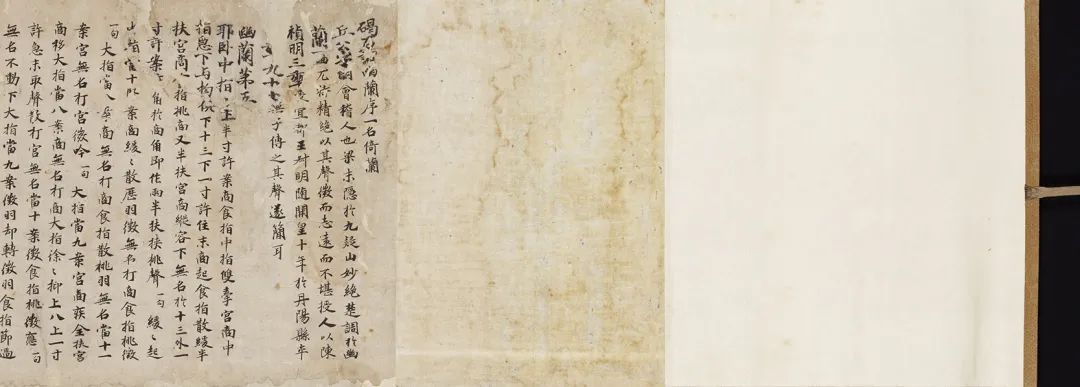 碣石調幽蘭序一名倚蘭
丘公字明會稽人也梁末隱於九疑山妙絕楚調於幽
蘭一曲尤特精絕以其聲微而志遠而不堪授人以陳
禎明三年授宜都王叔明隨開皇十年於丹陽縣卒
九十七無子傳之其聲遂簡耳
幽蘭第五
耶臥中指上半寸許案商食指中指雙牽宮商中
指急下與拘俱下十三下一寸許住末商起食指散緩半
扶宮商食指挑商又半扶宮商縱容下無名於十三外一
寸許案商角於商角即作兩半扶挾挑聲一句緩緩起
無名散打宮無名當十案徵食指挑徵應一句
大指當八案商無名打商食指散挑羽無名當十一
案宮無名打宮徐吟一句大指當九案宮商疾全扶宮
商移大指當八案商無名打商大指徐徐抑上八上一寸
許急末取聲散打宮無名當十案徵食指挑徵應一句
無名不動下大指當九案徵羽却轉徵羽食指節過